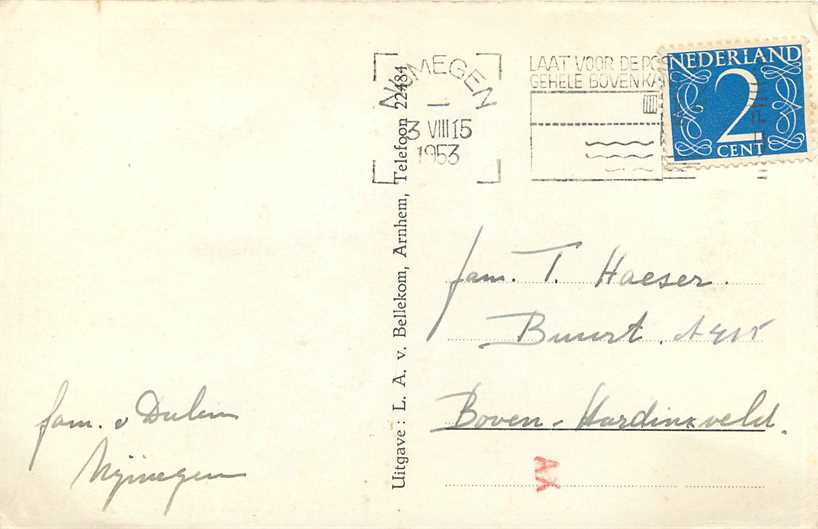 NIJMEGEN
3 VIII 15
1953
LAAT VOOR DE POS
GEHELE BOVENKA
NEDERLAND
2
CENT
fam. T. Haeser.
Buurt. A 415
Boven-Hardinxveld.
fam. v Dulem
Nijmegen
Uitgave: L. A. v. Bellekom, Arnhem, Telefoon 22484
AX